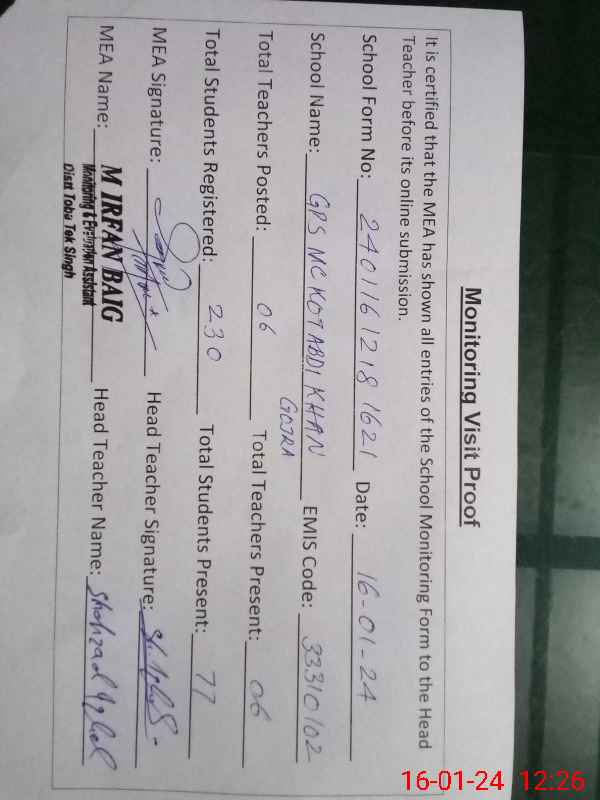 Monitoring Visit Proof
It is certified that the MEA has shown all entries of the School Monitoring Form to the Head
Teacher before its online submission.
School Form No: 2401161218 1621 Date: 16-01-24
School Name: GPS MC KOT ABDI KHAN GOJRA EMIS Code: 33310102
Total Teachers Posted: 06 Total Teachers Present: 06
Total Students Registered: 230 Total Students Present: 77
MEA Signature: Head Teacher Signature:
MEA Name: M IRFAN BAIG Head Teacher Name: Shahzad Iqbal
Monitoring & Evaluation Assistant
Distt Toba Tek Singh
16-01-24 12:26